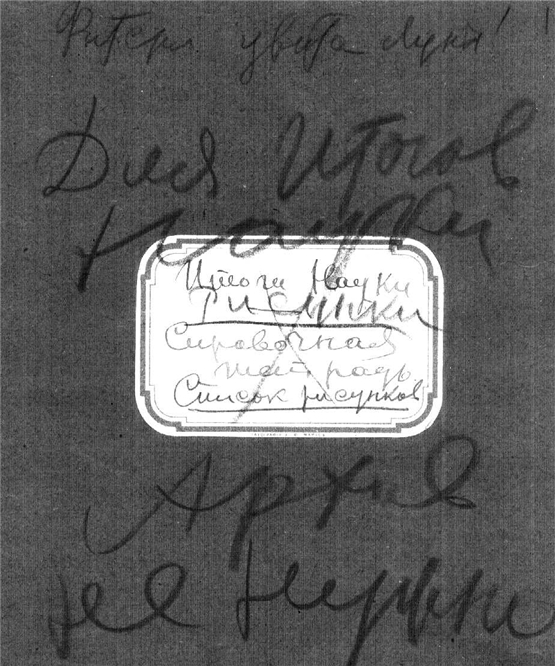 цвета Луны!
Для Итогов
Науки
Итоги Науки
Рисунки
Справочная
тетрадь
Список рисунков
Архив
не нужно